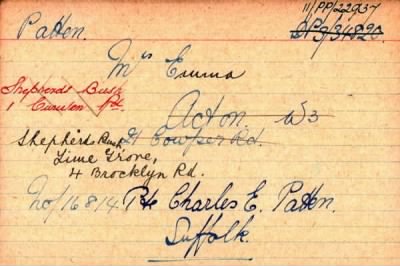 11/PP/22937
Patten.
DP9/34820.
Mrs Emma
Shepherds Bush
1 Rd.
Acton W3
Shepherds Bush 21 Cowper Rd.
Lime Grove,
4 Brocklyn Rd.
No/16814 Pte Charles E. Patten.
Suffolk.